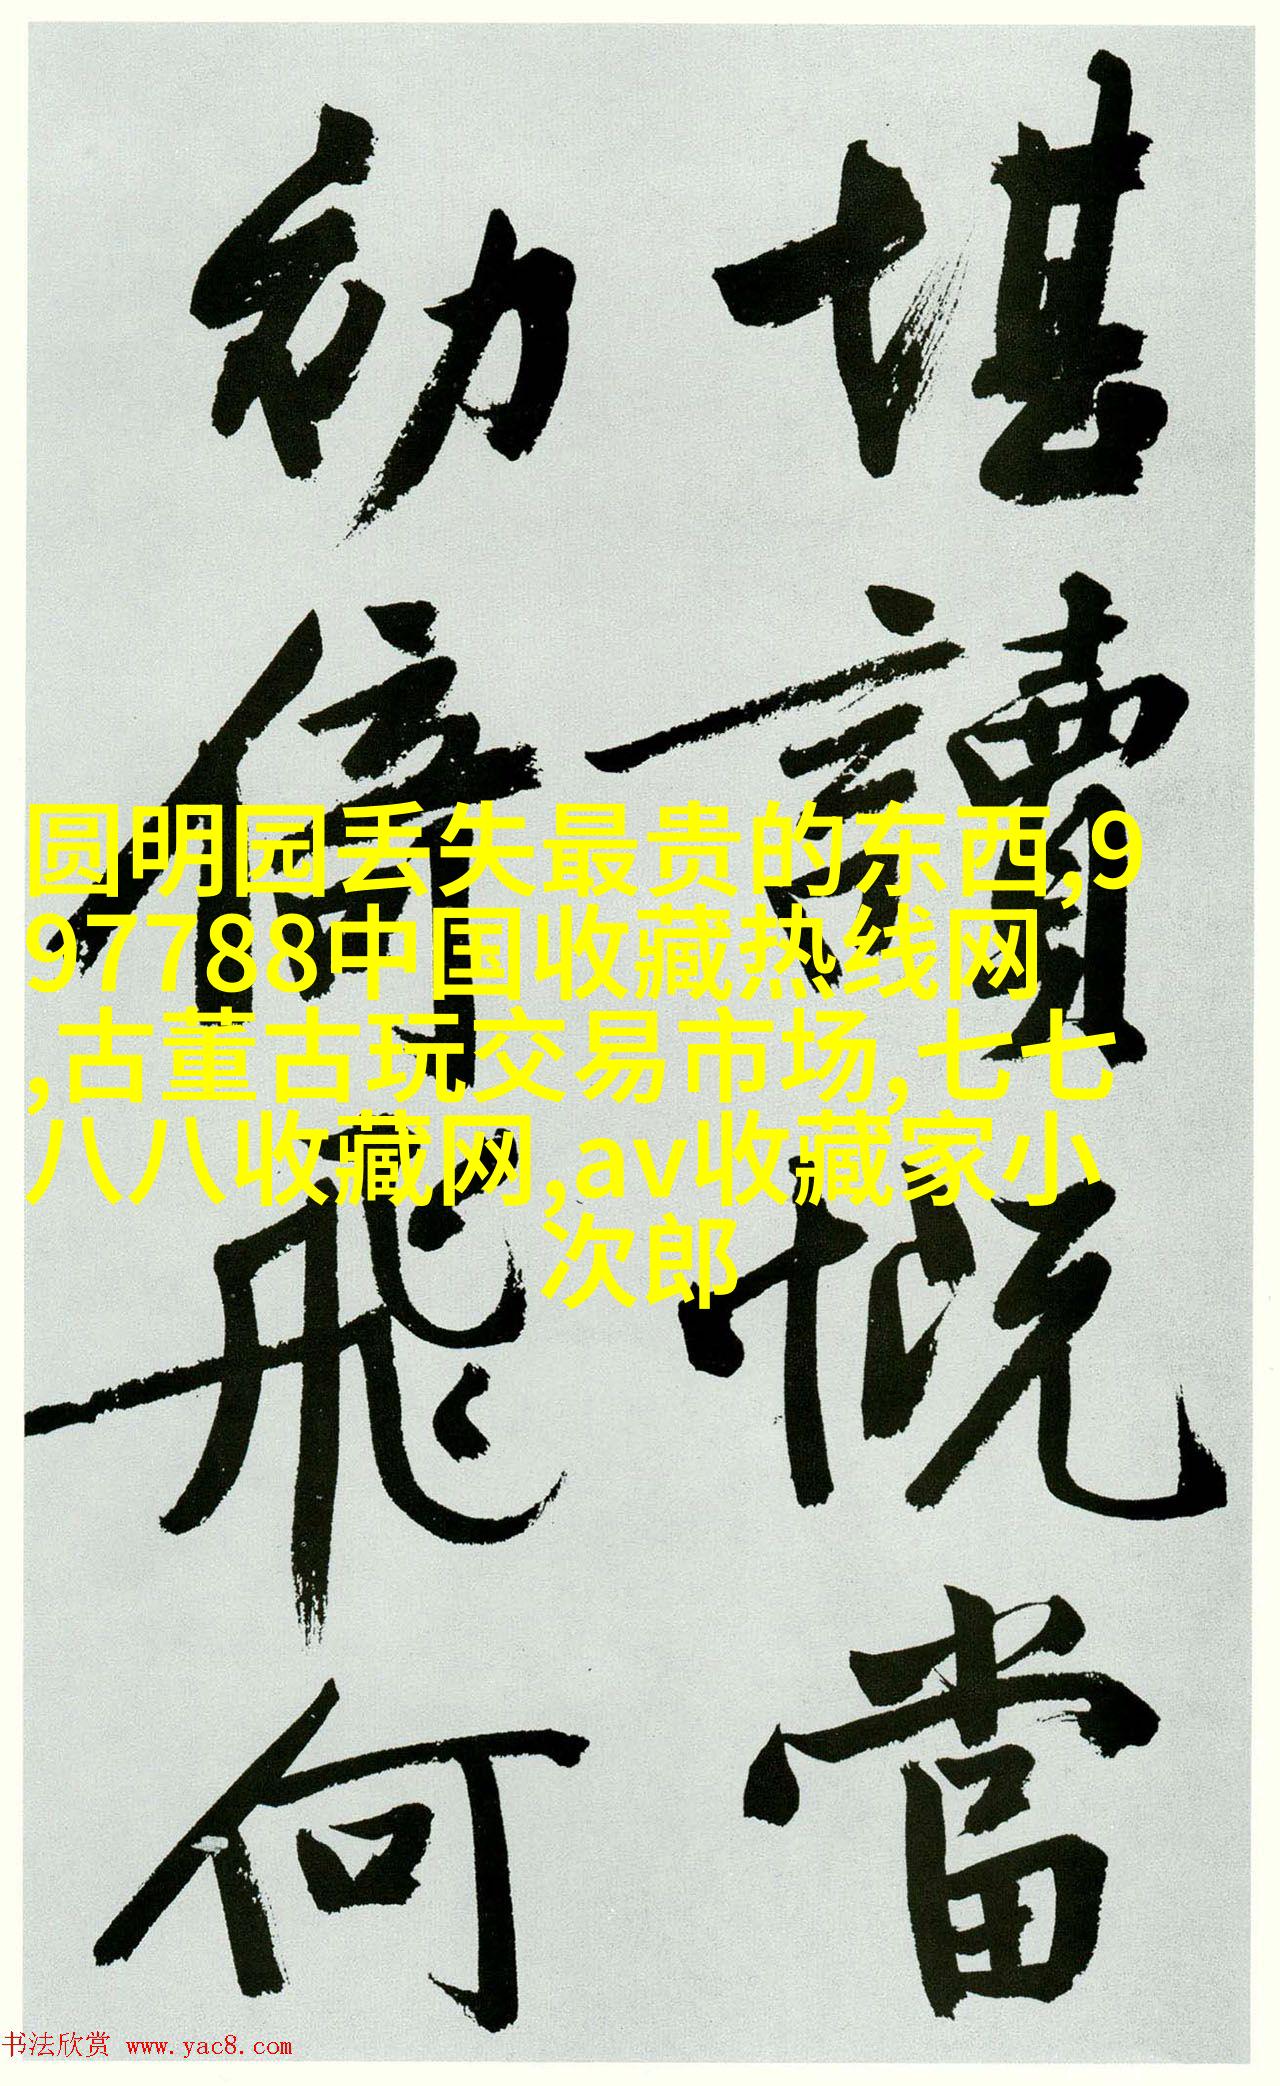 堪讀慨當
倚飛何
圆明园丢失最贵的东西,9
97788中国收藏热线网
,古董古玩交易市场, 七七
八八收藏网,av收藏家小
次郎
书法欣赏 www.yac8.com